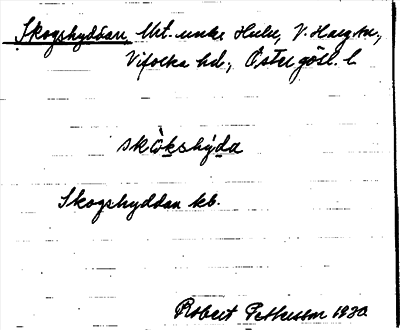 Skogshyddan, lht. under Hulu, V. Harg sn,
Vifolka hd., Östergötl. l.
skòkshýda
Skogshyddan kb.
Robert Pettersson 1930